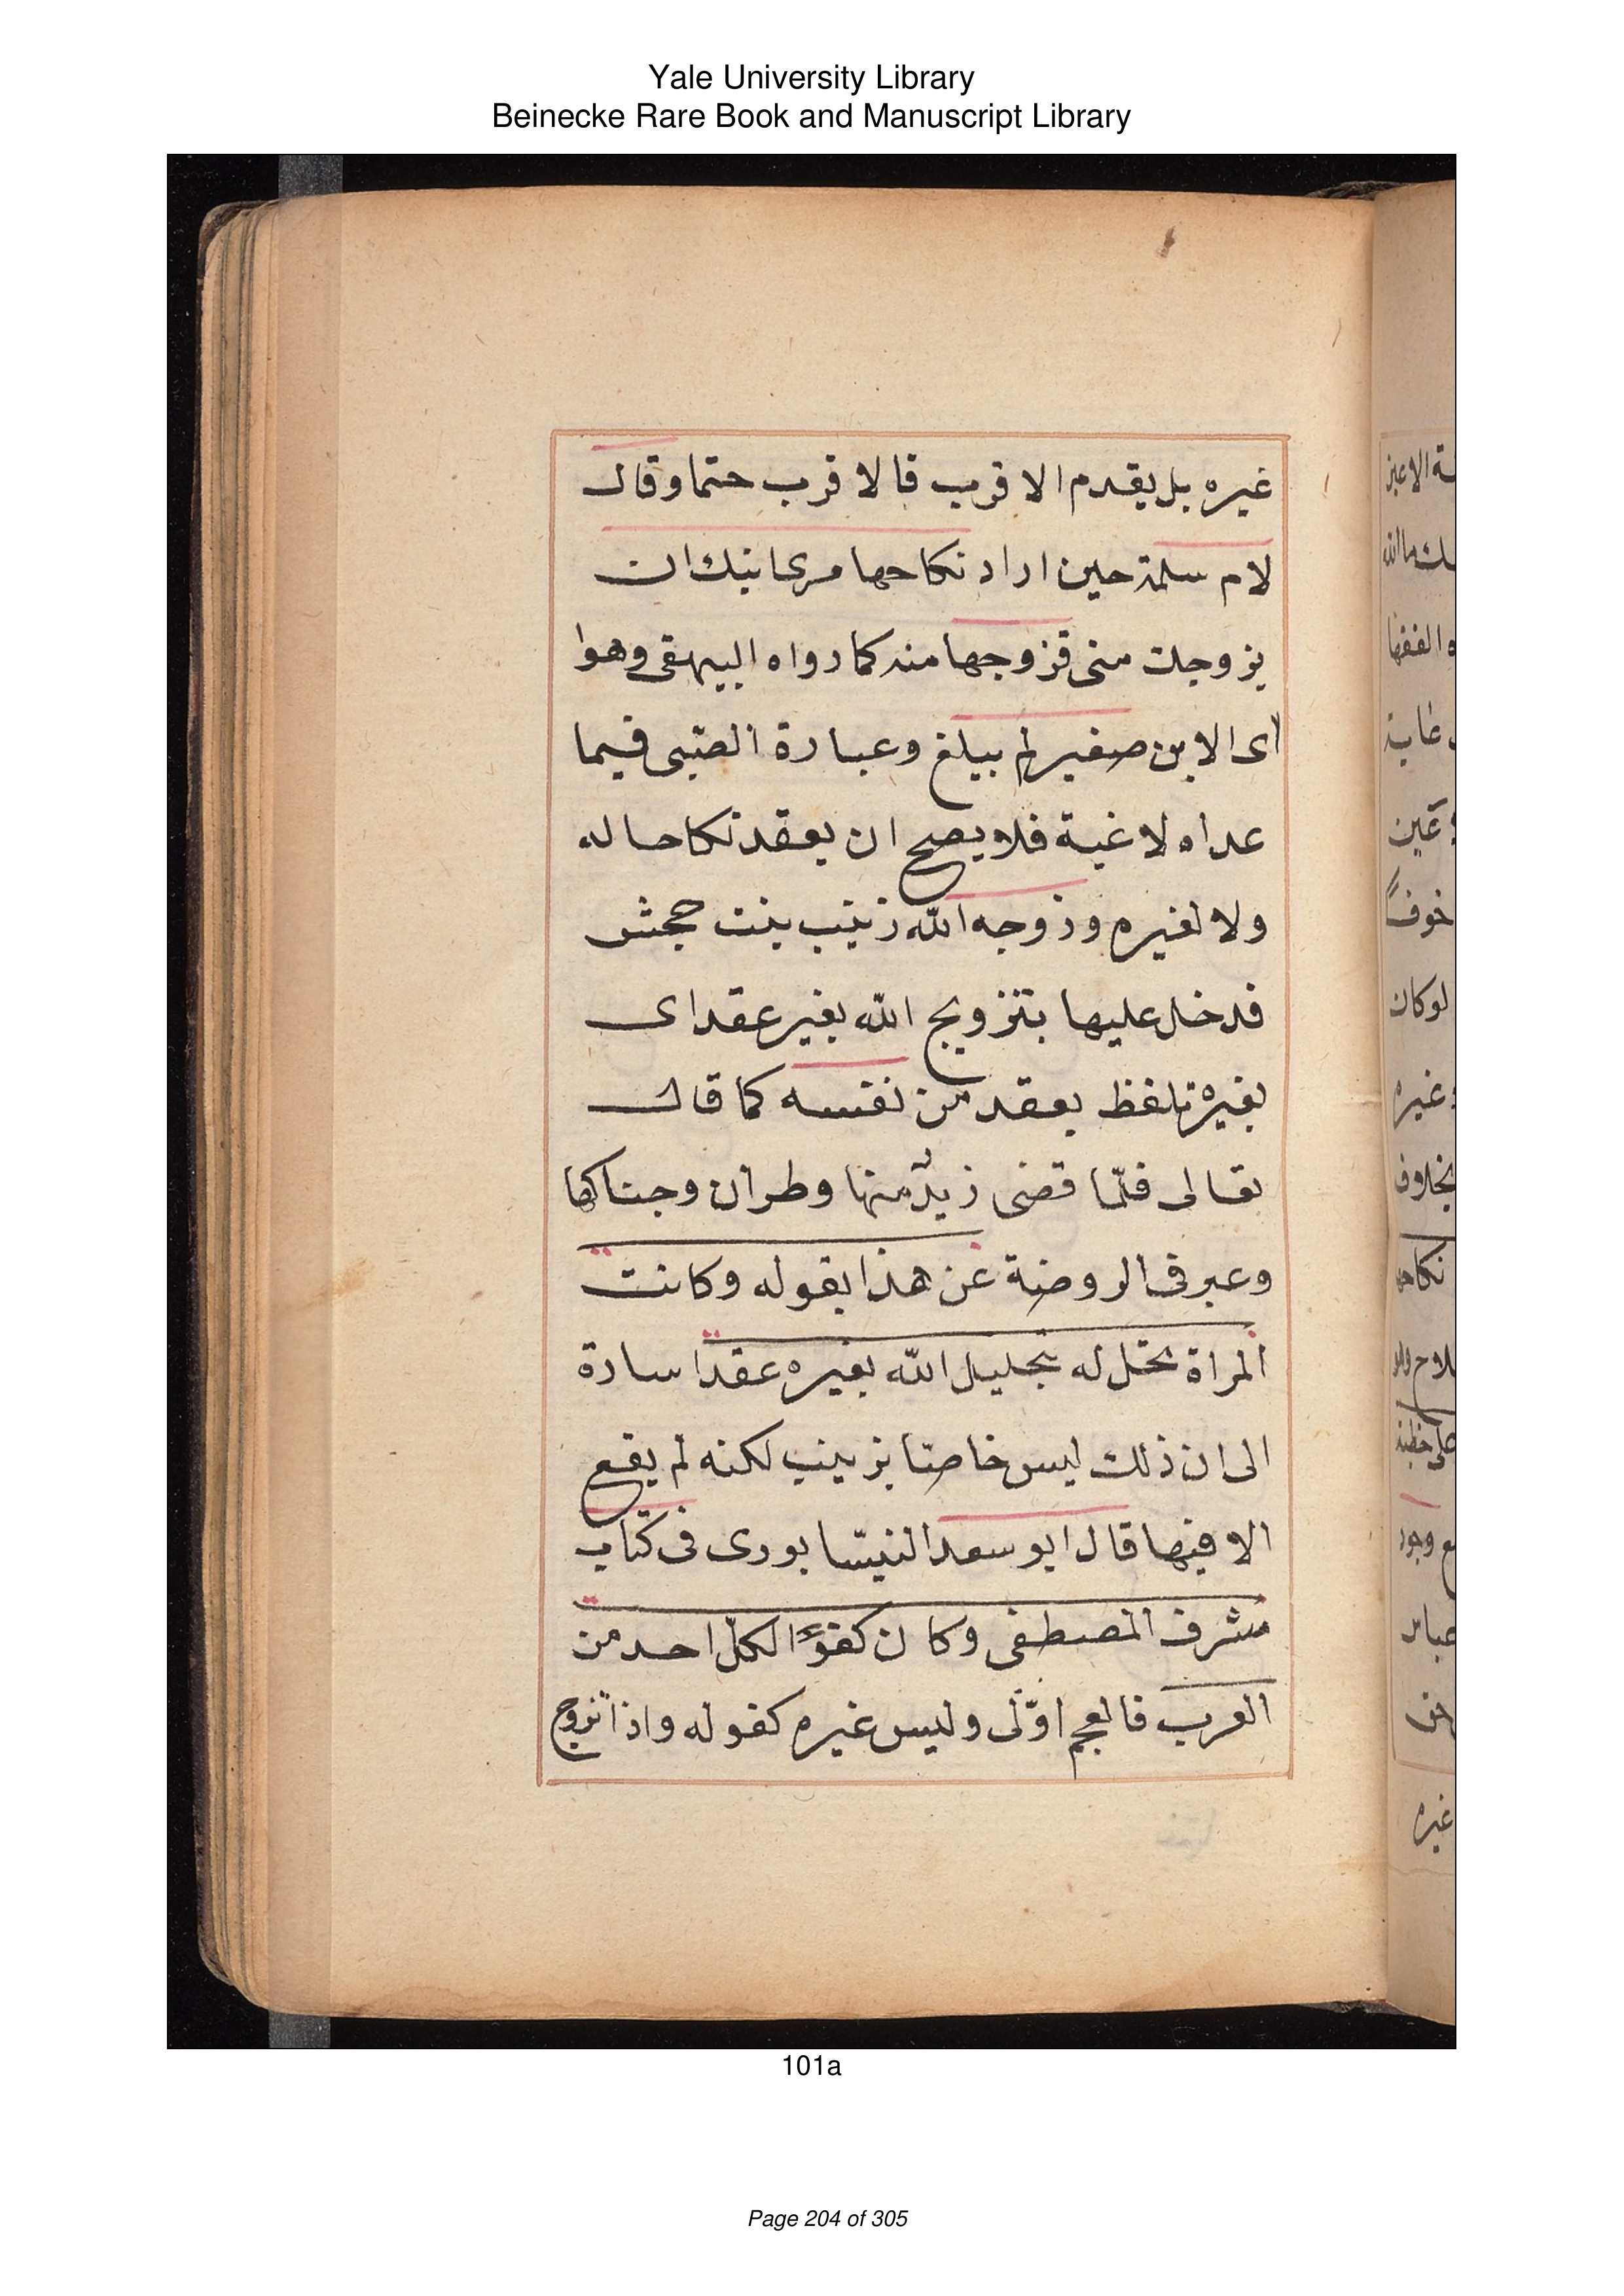 Yale University Library
Beinecke Rare Book and Manuscript Library
غيره بل يقدم الاقرب فالاقرب حتما وقال
لام سلمة حين اراد نكاحها مرى ابنك ان
يزوجك منى فزوجها منه كما رواه البيهقى وهوا
اى الابن صغير لم يبلغ وعبارة الصبى فيما
عداه لاغية فلا يصح ان يعقد نكاحا له
ولا لغيره وزوجه الله زينب بنت جحش
فدخل عليها بتزويج الله بغير عقد اى
بغيره تلفظ بعقد من نفسه كما قال
تعالى فلمّا قضى زيدٌ منها وطرا زوجناكها
وعبر فى الروضة عن هذا بقوله وكانت
المراة تحل له بتحليل الله بغيره عقد اسارة
الى ان ذلك ليس خاصّا بزينب لكنه لم يقع
الا فيها قال ابو سعد النيسّابورى فى كتاب
شرف المصطفى وكان كفوًا لكلّ احد من
العرب فالعجم اوّلى وليس غيره كقوله واذا تزوج
101a
Page 204 of 305